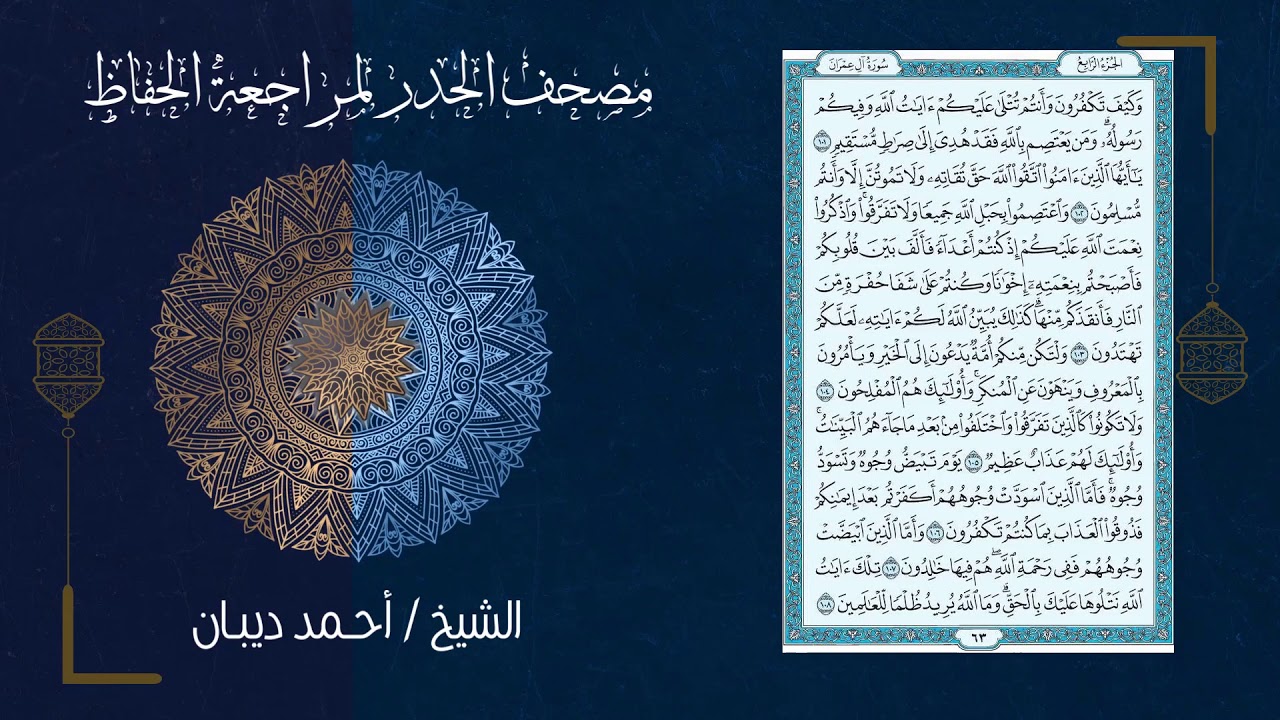 مصحف الحدر لمراجعة الحفاظ
الشيخ / أحمد ديبان
الجزء الرابع
سورة آل عمران
وَكَيْفَ تَكْفُرُونَ وَأَنتُمْ تُتْلَىٰ عَلَيْكُمْ ءَايَٰتُ ٱللَّهِ وَفِيكُمْ
رَسُولُهُۥ ۗ وَمَن يَعْتَصِم بِٱللَّهِ فَقَدْ هُدِىَ إِلَىٰ صِرَٰطٍ مُّسْتَقِيمٍ ١٠١
يَٰٓأَيُّهَا ٱلَّذِينَ ءَامَنُوا۟ ٱتَّقُوا۟ ٱللَّهَ حَقَّ تُقَاتِهِۦ وَلَا تَمُوتُنَّ إِلَّا وَأَنتُم
مُّسْلِمُونَ ١٠٢ وَٱعْتَصِمُوا۟ بِحَبْلِ ٱللَّهِ جَمِيعًا وَلَا تَفَرَّقُوا۟ ۚ وَٱذْكُرُوا۟
نِعْمَتَ ٱللَّهِ عَلَيْكُمْ إِذْ كُنتُمْ أَعْدَآءً فَأَلَّفَ بَيْنَ قُلُوبِكُمْ
فَأَصْبَحْتُم بِنِعْمَتِهِۦٓ إِخْوَٰنًا وَكُنتُمْ عَلَىٰ شَفَا حُفْرَةٍ مِّنَ
ٱلنَّارِ فَأَنقَذَكُم مِّنْهَا ۗ كَذَٰلِكَ يُبَيِّنُ ٱللَّهُ لَكُمْ ءَايَٰتِهِۦ لَعَلَّكُمْ
تَهْتَدُونَ ١٠٣ وَلْتَكُن مِّنكُمْ أُمَّةٌ يَدْعُونَ إِلَى ٱلْخَيْرِ وَيَأْمُرُونَ
بِٱلْمَعْرُوفِ وَيَنْهَوْنَ عَنِ ٱلْمُنكَرِ ۚ وَأُو۟لَٰٓئِكَ هُمُ ٱلْمُفْلِحُونَ ١٠٤
وَلَا تَكُونُوا۟ كَٱلَّذِينَ تَفَرَّقُوا۟ وَٱخْتَلَفُوا۟ مِنۢ بَعْدِ مَا جَآءَهُمُ ٱلْبَيِّنَٰتُ ۚ
وَأُو۟لَٰٓئِكَ لَهُمْ عَذَابٌ عَظِيمٌ ١٠٥ يَوْمَ تَبْيَضُّ وُجُوهٌ وَتَسْوَدُّ
وُجُوهٌ ۚ فَأَمَّا ٱلَّذِينَ ٱسْوَدَّتْ وُجُوهُهُمْ أَكَفَرْتُم بَعْدَ إِيمَٰنِكُمْ
فَذُوقُوا۟ ٱلْعَذَابَ بِمَا كُنتُمْ تَكْفُرُونَ ١٠٦ وَأَمَّا ٱلَّذِينَ ٱبْيَضَّتْ
وُجُوهُهُمْ فَفِى رَحْمَةِ ٱللَّهِ ۖ هُمْ فِيهَا خَٰلِدُونَ ١٠٧ تِلْكَ ءَايَٰتُ
ٱللَّهِ نَتْلُوهَا عَلَيْكَ بِٱلْحَقِّ ۗ وَمَا ٱللَّهُ يُرِيدُ ظُلْمًا لِّلْعَٰلَمِينَ ١٠٨
٦٣